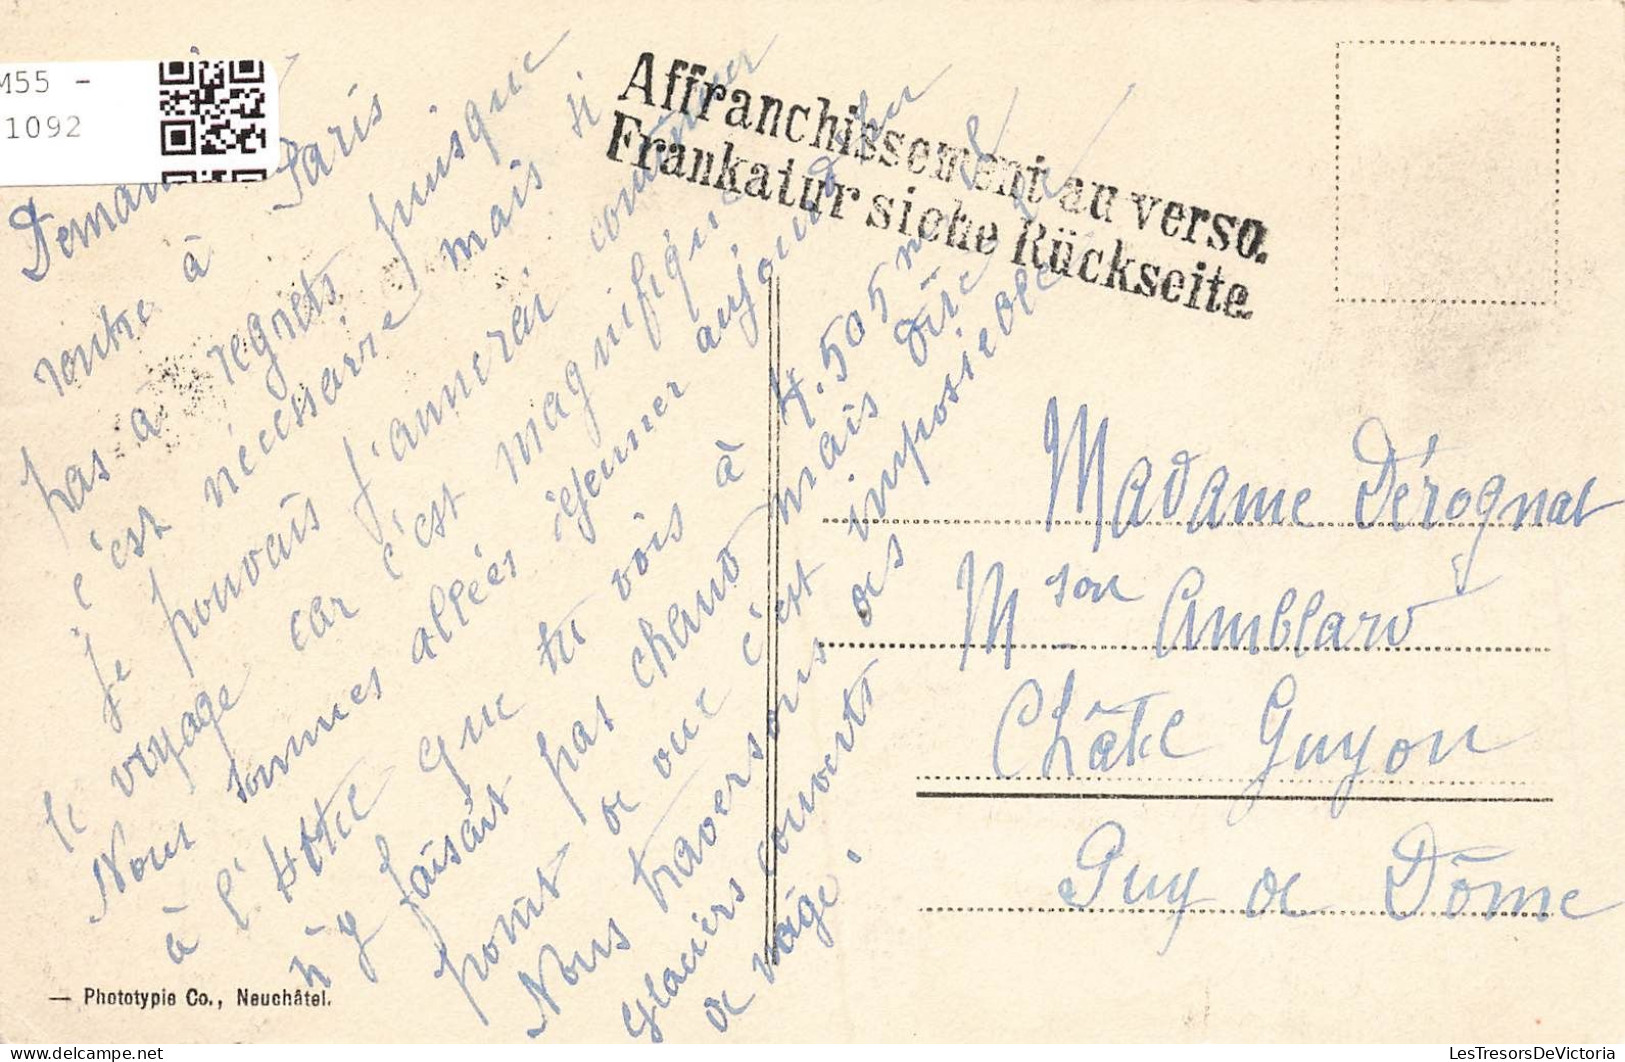 M55 -
1092
Affranchissement au verso.
Frankatur siehe Rückseite.
rentre à Paris
pas à regrets puisque
c'est nécessaire mais si
Je pouvais j'aimerai continuer
le voyage car c'est magnifique
Nous sommes allées déjeuner aujourd'hui
à l'Hôtel que tu vois à 4.505 m
n'y faisait pas chaud mais
point de vue c'est impossieble
Nous traversons des
glaciers couverts
de neige.
Madame Dérognat
Mson Amblard
Châtel Guyon
Puy de Dôme
— Phototypie Co., Neuchâtel.
LesTresorsDeVictoria